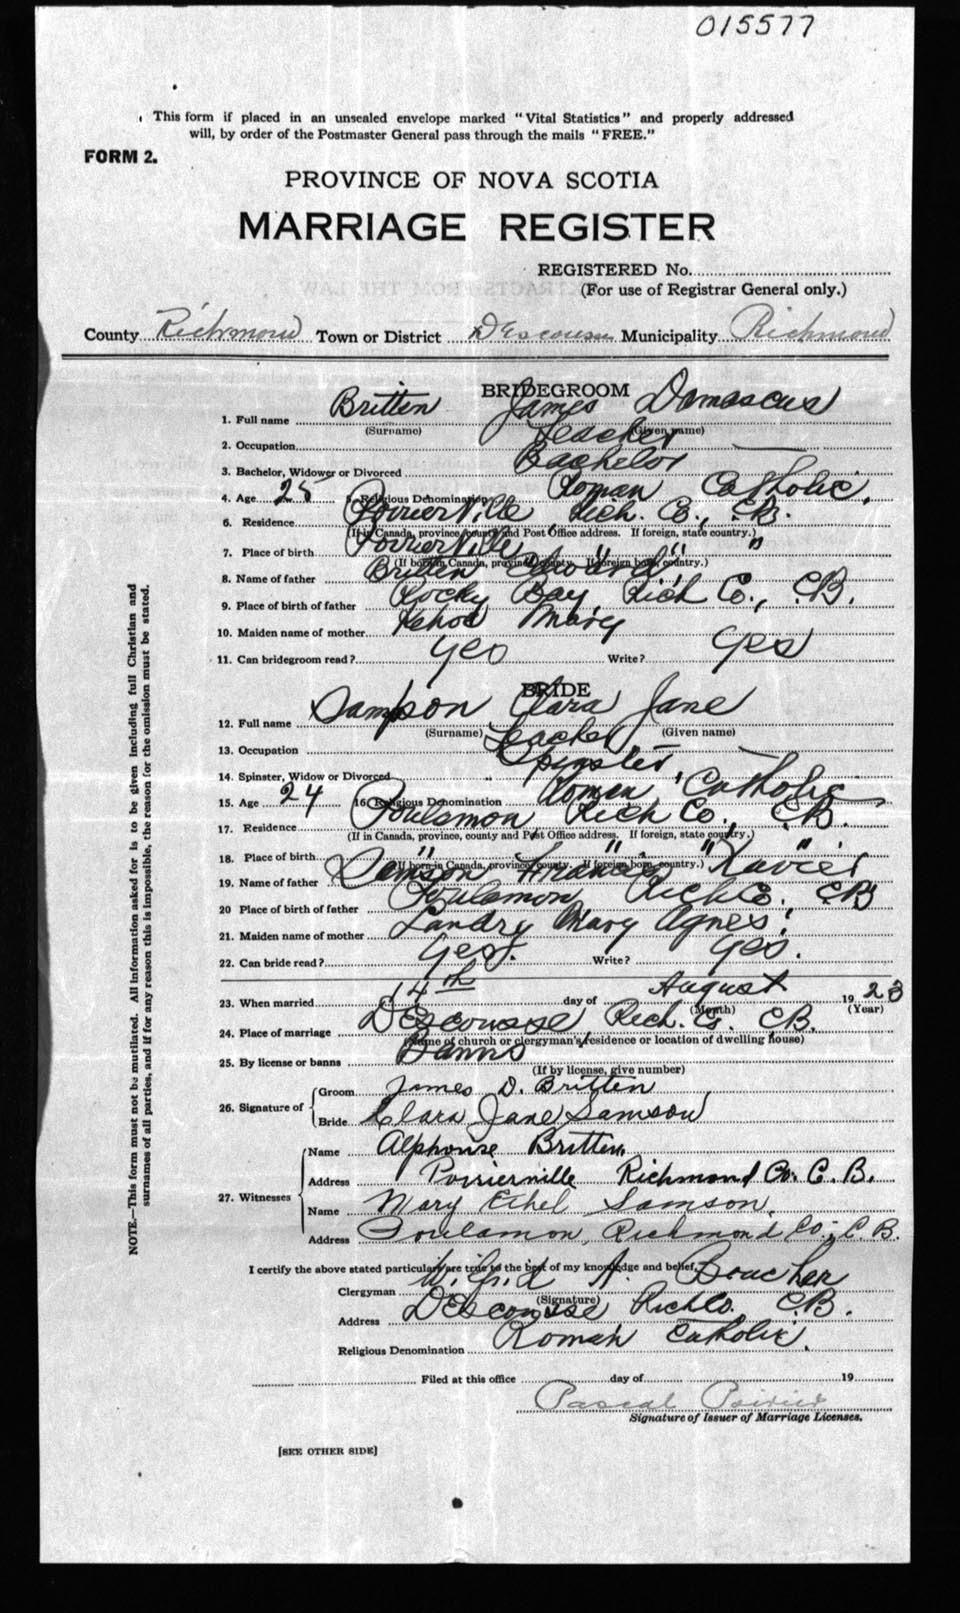 015577
This form if placed in an unsealed envelope marked "Vital Statistics" and properly addressed
will, by order of the Postmaster General pass through the mails "FREE."
FORM 2.
PROVINCE OF NOVA SCOTIA
MARRIAGE REGISTER
REGISTERED No.
(For use of Registrar General only.)
County Richmond Town or District Descousse Municipality Richmond
BRIDEGROOM
1. Full name Britten James Damascus
(Surname) (Given name)
2. Occupation Teacher
3. Bachelor, Widower or Divorced Bachelor
4. Age 25 5. Religious Denomination Roman Catholic.
6. Residence PoirierVille Rich. Co., C.B.
(If in Canada, province, county and Post Office address. If foreign, state country.)
7. Place of birth PoirierVille " " "
(If born in Canada, province, county. If foreign born, country.)
8. Name of father Britten Edward
9. Place of birth of father Rocky Bay Rich Co., C.B.
10. Maiden name of mother Kehoe Mary
11. Can bridegroom read? Yes Write? Yes
BRIDE
12. Full name Sampson Clara Jane
(Surname) (Given name)
13. Occupation Teacher
14. Spinster, Widow or Divorced Spinster
15. Age 24 16. Religious Denomination Roman Catholic
17. Residence Poulamon Rich Co., C.B.
(If in Canada, province, county and Post Office address. If foreign, state country.)
18. Place of birth " " " "
(If born in Canada, province, county. If foreign born, country.)
19. Name of father Samson Francis Xavier
20 Place of birth of father Poulamon Rich Co. C.B
21. Maiden name of mother Landry Mary Agnes
22. Can bride read? Yes. Write? Yes.
23. When married 14th day of August 1923
(Month) (Year)
24. Place of marriage DEscousse, Rich. Co. C.B.
(Name of church or clergyman's residence or location of dwelling house)
25. By license or banns Banns
(If by license, give number)
26. Signature of Groom James D. Britten
Bride Clara Jane Samson
27. Witnesses Name Alphonse Britten
Address Poirierville Richmond Co. C.B.
Name Mary Ethel Samson.
Address Poulamon, Richmond Co., C.B.
I certify the above stated particulars are true to the best of my knowledge and belief,
Clergyman A. Boucher
(Signature)
Address DEscousse Rich Co. C.B.
Religious Denomination Roman Catholic.
Filed at this office day of 19
Pascal Poirier
Signature of Issuer of Marriage Licenses.
[SEE OTHER SIDE]
NOTE.—This form must not be mutilated. All information asked for is to be given including full Christian and
surnames of all parties, and if for any reason this is impossible, the reason for the omission must be stated.